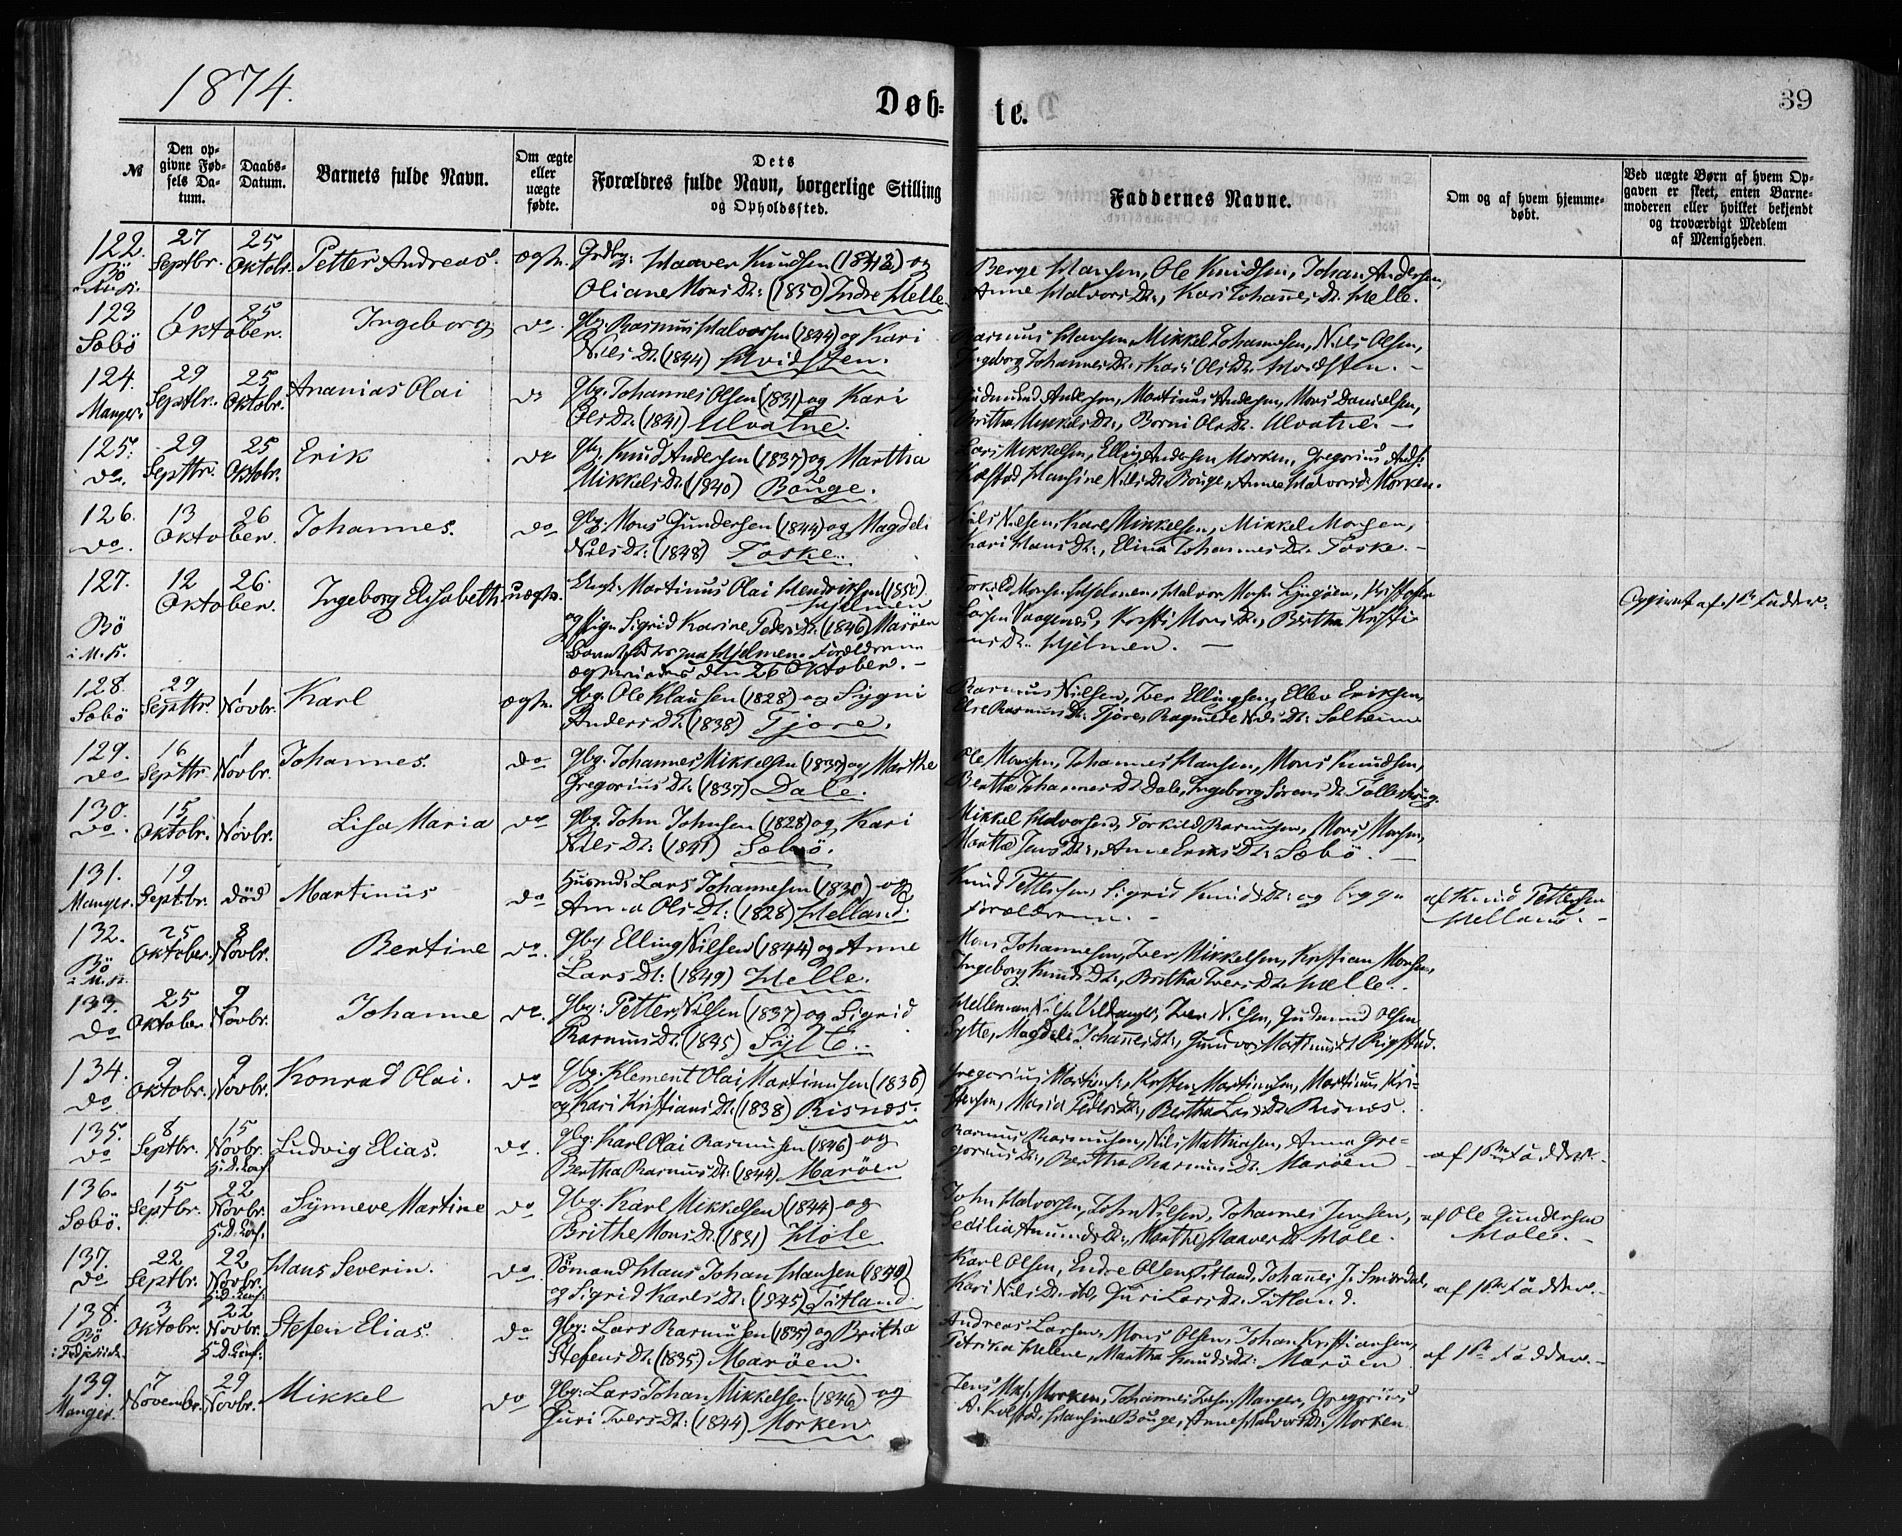 1874.
Døb-
te.
39
№
Den op-
givne Fød-
sels Da-
tum.
Daabs-
Datum.
Barnets fulde Navn.
Om ægte
eller
uægte
fødte.
Dets
Forældres fulde Navn, borgerlige Stilling
og Opholdssted.
Faddernes Navne.
Om og af hvem hjemme-
døbt.
Ved uægte Børn af hvem Op-
gaven er skeet, enten Barne-
moderen eller hvilket bekjendt
og troværdigt Medlem
af Menigheden.
122. 27 Septbr. 25 Oktobr. Petter Andreas. ægte. Haaver Knudsen (1843) og
Bö
Oliane Mons Dt: (1850) Indre Helle.
Berge Hansen, Ole Knudsen, Johan Andersen,
Anne Halvors Dt:, Kari Johannes Dt: Helle.
123 10 25 Oktober. Ingeborg do Gbg. Rasmus Halvorsen (1844) og Kari
Sæbö
Nils Dt: (1844) Hvidsten.
Rasmus Hansen, Mikkel Johannesen, Nils Olsen,
Ingeborg Johannes Dt:, Kari Ols Dt: Hvidsten. -
124. 29 Septbr. 25 Oktobr. Ananias Olai do Gbg. Johannes Olsen (1831) og Kari
Manger.
Ols Dt: (1841) Ulvatne.
Gudmund Andersen, Martinus Andersen, Mons Danielsen,
Britha Mikkels Dt:, Borni Ols Dt: Ulvatne. -
125. 29 Septbr. 25 Oktobr. Erik do Gbg. Knud Andersen (1837) og Martha
do.
Mikkels Dt: (1840) Bouge.
Lars Mikkelsen, Elling Andersen Morken, Gregorius Ands:
Hansine Nils Dt: Bouge, Anne Halvors Dt: Morken.
126. 13 26 Oktober. Johannes. do Gbg: Mons Gundersen (1844) og Magdeli
do.
Nils Dt: (1848) Toske.
Nils Nilsen, Karl Mikkelsen, Mikkel Monsen,
Kari Hans Dt:, Elina Johannes Dt: Toske. -
127. 12 26. Oktober. Ingeborg Elisabeth. uægte. Martinus Olai Hendriksen (1850)
Hjelmen
Bö
i M. K.
og Pige Sigrid Karine Peders Dt: (1846) Maröen
Barnet født paa Hjelmen. Forældrene
den 26 Oktober. -
Torkild Monsen Hjelmen, Halvor Mons: Ljngöen, Kristoffer
Larsen Vaagenes, Kersti Mons Dt:, Britha Kristi-
ans Dt: Hjelmen. -
Opgivet af 1ste Fadder.
128. 29 Septbr. 1 Novbr. Karl ægte. Gbg. Ole Klausen (1828) og Sygni
Sæbö
Anders Dt: (1838) Tjore.
Rasmus Nilsen, Iver Ellingsen, Ellev Eriksen,
Else Rasmus Dt: Tjore, Ragnilde Nils Dt: Solheim
129. 16 Septbr. 1 Novbr. Johannes. do Gbg. Johannes Mikkelsen (1835) og Marthe
do
Gregorius Dt: (1837) Dale.
Ole Monsen, Johannes Hansen, Mons Knudsen,
Bertha Johannes Dt: Dale, Ingeborg Sörens Dt:
130. 15 Oktobr. 1 Novbr. Lisa Maria do Gbg. John Johnsen (1828) og Kari
do.
Nils Dt: (1841) Sæbö.
Mikkel Halvorsen, Torkild Rasmussen, Mons Monsen,
Martha Jens Dt:, Anne Eriks Dt: Sæbö. -
131. 19 Septbr. død Martinus do Husmd. Lars Johannesen (1830) og
Manger.
Anna Ols Dt: (1828) Helland.
Knud Pettersen, Sigrid Knuds Dt: og begge
Forældrene. -
af Knud Pettersen
Helland. -
132. 25 Oktober. 8 Novbr. Bertine do. Gbg Elling Nilsen (1844) og Anne
Bö
i M. K.
Lars Dt: (1849) Helle.
Mons Johannesen, Iver Mikkelsen, Kristian Monsen,
Ingeborg Knuds Dt:, Britha Ivers Dt: Helle.
133. 25 Oktober. 9 Novbr. Johanne do. Gbg: Petter Nilsen (1837) og Sigrid
do
Rasmus Dt: (1845) Sylte.
Iver Nilsen, Gudmund Olsen
Sylte, Magdeli Johannes Dt:, Gunvor Martinus Dt:
134. 9 Oktobr. 9 Novbr. Konrad Olai. do Gbg. Klement Olai Martinusen (1836)
do
og Kari Kristians Dt: (1838) Risnes.
Gregorius Martinus:, Kristen Martinusen, Martinus Kri-
stensen, Maria Peders Dt:, Bertha Lars Dt: Risnes.
135. 8 Septbr. 15 Novbr. Ludvig Elias. do. Gbg. Karl Olai Rasmusen (1846) og
do
Bertha Rasmus Dt: (1844) Maröen
Rasmus Rasmusen, Nils Mathiasen, Anna Gre-
gorius Dt:, Bertha Rasmus Dt: Maröen -
af 1ste Fadder. -
136. 15 Septbr. 22 Novbr. Synneve Martine do. Gbg. Karl Mikkelsen (1844) og
Sæbö.
Brithe Mons Dt: (1831) Hole
John Halvorsen, John Nilsen, Johannes Jensen,
Sedilia Amunds Dt:, Marthe Haavers Dt: Hole.
af Ole Gundersen
Hole. -
137. 22 Septbr. 22 Novbr. Hans Severin. do. Sömand Hans Johan Hansen (1840)
do
og Sigrid Karls Dt: (1845) Titland.
Karl Olsen, Endre Olsen Titland, Johannes J. Smördal,
Kari Nils Dt: ibd, Guri Lars Dt: Titland.
af 1ste Fadder. -
138. 3 Oktobr. 22 Novbr. Stefen Elias. do Gbg: Lars Rasmusen (1835) og Britha
Bö
Stefens Dt: (1835) Maröen.
Andreas Larsen, Mons Olsen, Johan Kristiansen,
Petrika Helene, Martha Knuds Dt: Maröen
af 1ste Fadder. -
139. 7 Novembr. 29 Novbr. Mikkel do Gbg: Lars Johan Mikkelsen (1846) og
Manger.
Guri Ivers Dt: (1844) Morken
Jens Mik: Morken, Johannes Johns: Manger, Gregorius
A. Hansine Bouge, Anne Halvors Dt: Morken